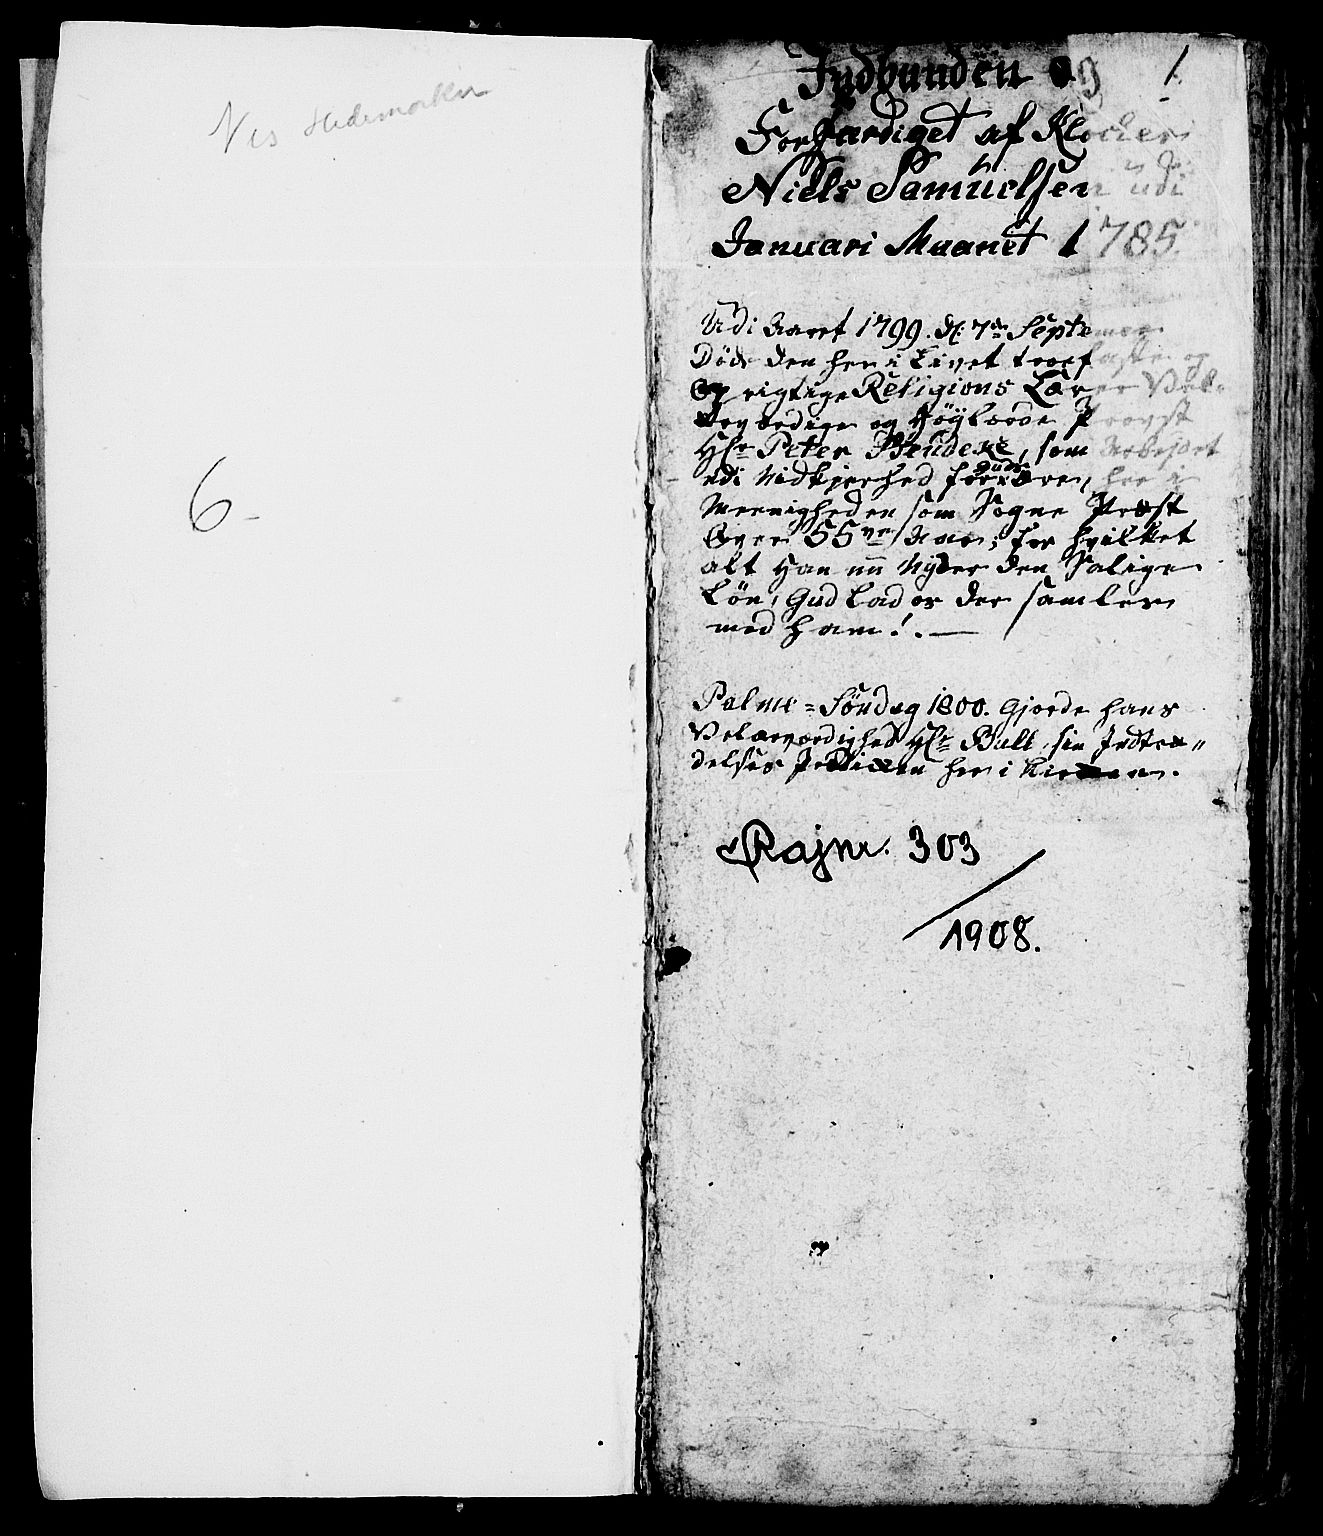 Nes Hedemarken
6-
1
Indbunden og
Forfærdiget af Klocker
Niels Samuelsen udi
Januari Maanet 1785.
Udi Aaret 1799. d: 7de September
Døde den her i Livet troefaste og
Oprigtige Religions Lærer Vel-
Ærværdige og Høylærde Provst
Hr Peter Bendeke, som Arbejdet
udi Nidkjerhed for Guds Ære, her i
Meenigheden som Sogne Præst
Over 55ve Aar; for hvilket
alt Han nu Nyder den Salige
Løn, Gud lad os der samles
med ham!. —
Palme-Søndag 1800. Gjorde hans
Velærværdighed Hr Bull, sin Indtræ-
delses Prediken her i Kirken.
Pajnr. 303
/
1908.